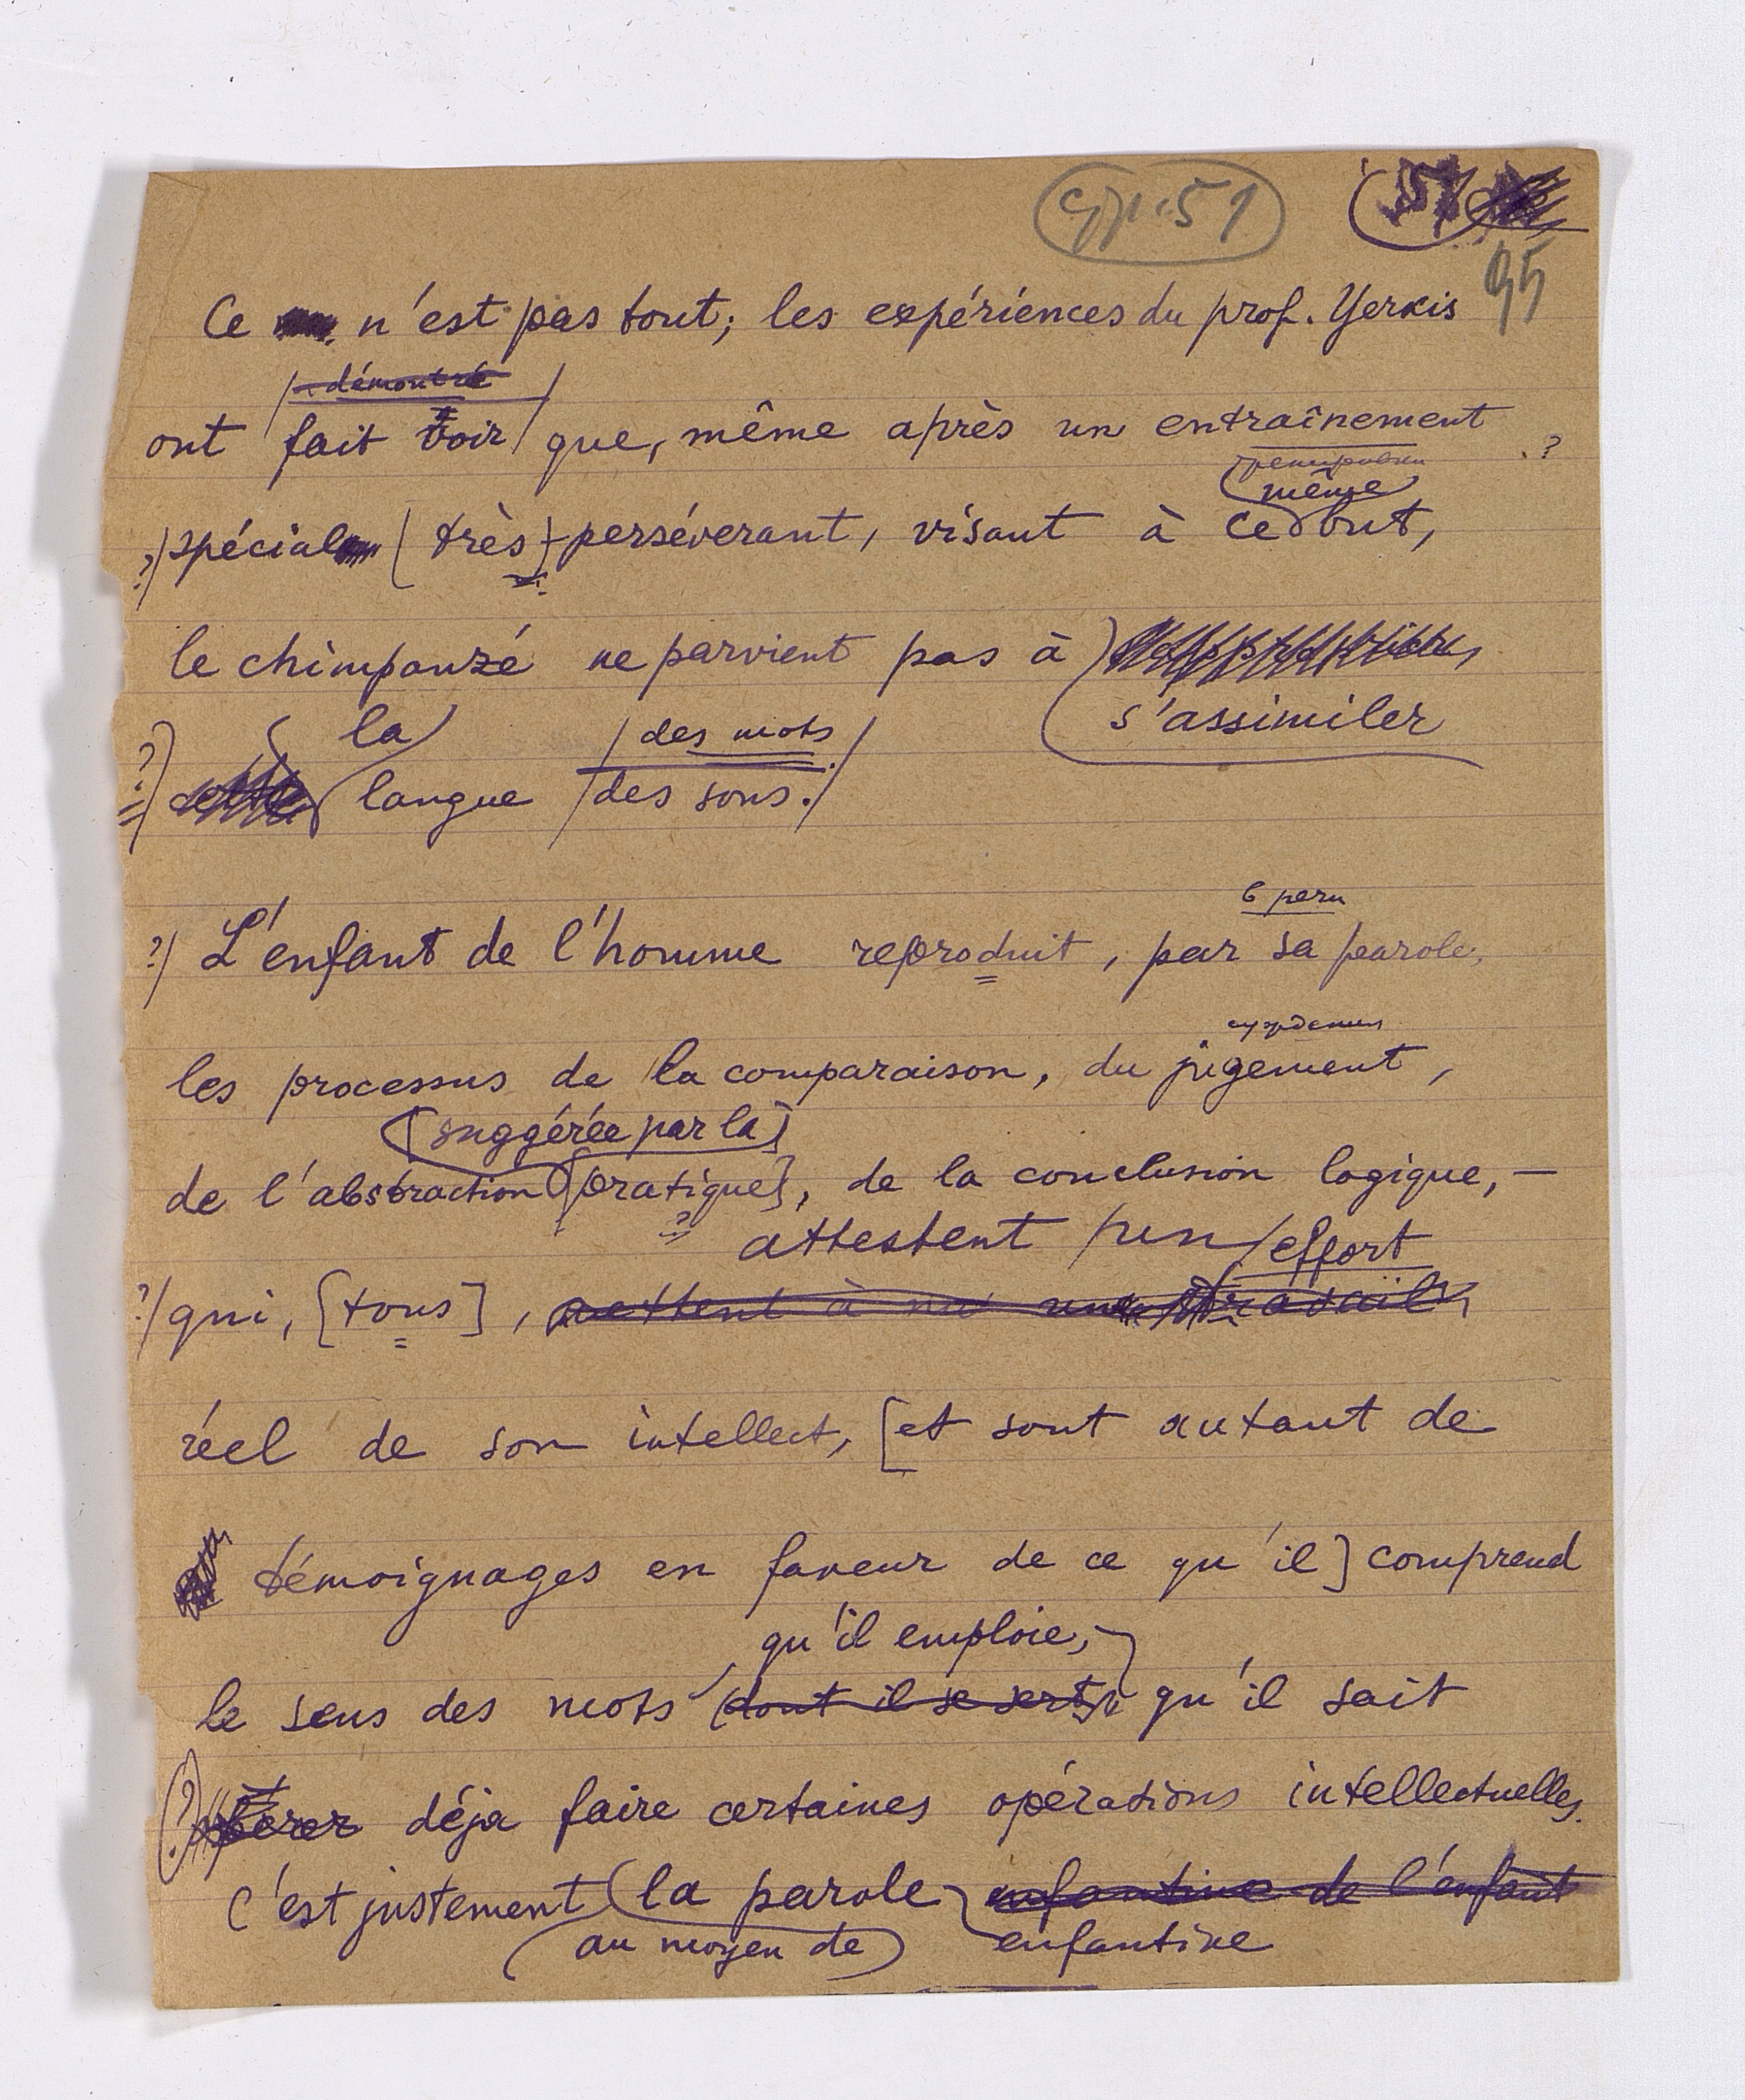 стр. 51
57
95
Ce n'est pas tout; les expériences du prof. Yerkis
démontré
ont fait voir que, même après un entraînement ?
même
?) spécial [très] persévérant, visant à ce but,
le chimpanzé ne parvient pas à
s'assimiler
la des mots
?) langue des sons.
в речи
?) L'enfant de l'homme reproduit, par sa parole,
суждение
les processus de la comparaison, du jugement,
[suggérée par la]
de l'abstraction [pratique], de la conclusion logique, —
? attestent un effort
?) qui, [tous], mettent à nu un travail
réel de son intellect, [et sont autant de
témoignages en faveur de ce qu'il] comprend
qu'il emploie,
le sens des mots (dont il se sert) qu'il sait
? déja faire certaines opérations intellectuelles.
C'est justement la parole enfantine de l'enfant
au moyen de enfantine